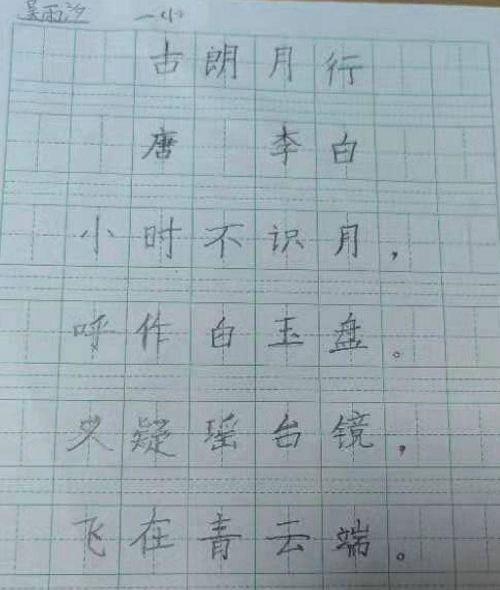 吴雨汐 一(1)
古朗月行
唐 李白
小时不识月，
呼作白玉盘。
又疑瑶台镜，
飞在青云端。